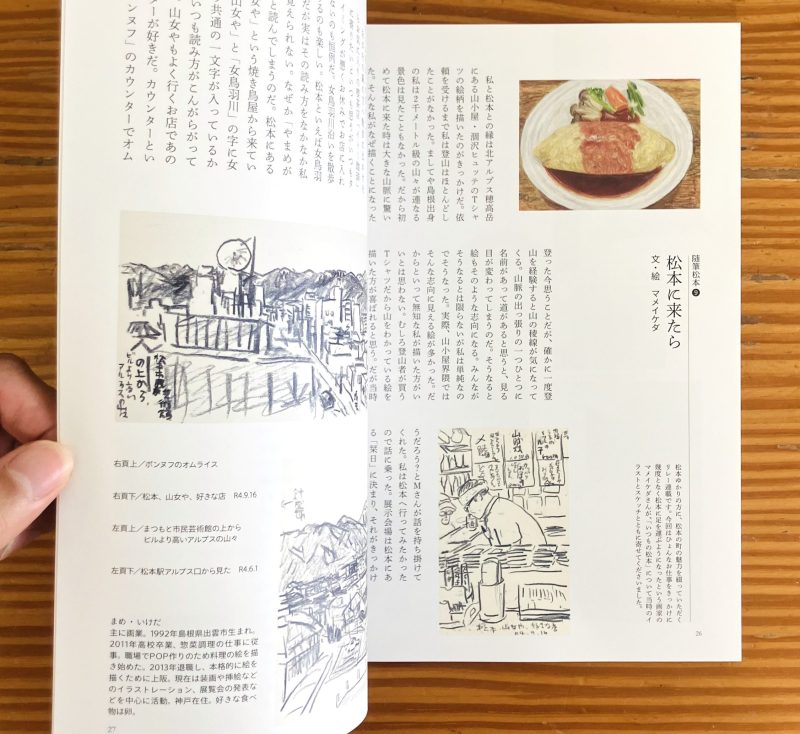 随筆松本❾
松本に来たら
文・絵 マメイケダ
松本ゆかりの方に、松本の町の魅力を綴っていただく
リレー連載です。今回はひょんなお仕事をきっかけに
幾度となく松本に足を運ぶようになったという画家の
マメイケダさんが、「いつもの松本」について当時のイ
ラストとスケッチとともに寄せてくださいました。
私と松本との縁は北アルプス穂高岳
にある山小屋・涸沢ヒュッテのTシャ
ツの絵柄を描いたのがきっかけだ。依
頼を受けるまで私は登山はほとんどし
たことがなかった。ましてや島根出身
の私は2千メートル級の山々が連なる
景色は見たこともなかった。だから初
めて松本に来た時は大きな山脈に驚い
た。そんな私がなぜ描くことになった
登った今思うことだが、確かに一度登
山を経験すると山の稜線が気になって
くる。山脈の出っ張りの一つひとつに
名前があって道があると思うと、見る
目が変わってしまうのだ。そうなると
絵もそのような志向になる。みんなが
そうなるとは限らないが私は単純なの
でそうなった。実際、山小屋界隈では
そんな志向に見える絵が多かった。だ
からといって無知な私が描いた方がい
いとは思わない。むしろ登山者が買う
Tシャツだから山をわかっている絵を
描いた方が喜ばれると思う。だが当時
うだろう?とMさんが話を持ち掛けて
くれた。私は松本へ行ってみたかった
ので話に乗った。展示会場は松本にあ
る「栞日」に決まり、それがきっかけ
26
イミングが悪くお休みでお店に入れ
ないのも恒例だ。女鳥羽川沿いを散歩
するのも楽しい。松本といえば女鳥羽
だが実はその読み方をなかなか私
覚えられない。なぜか「やまめが
と読んでしまうのだ。松本にある
女や」という焼き鳥屋から来てい
山女や」と「女鳥羽川」の字に女
共通の一文字が入っているか
いつも読み方がこんがらがって
山女やもよく行くお店であの
ターが好きだ。カウンターとい
ンヌフ」のカウンターでオム
の上から
ビルより高い
アルプスの山々
右頁上／ボンヌフのオムライス
右頁下／松本、山女や、好きな店 R4.9.16
左頁上／まつもと市民芸術館の上から
ビルより高いアルプスの山々
左頁下／松本駅アルプス口から見た R4.6.1
まめ・いけだ
主に画業。1992年島根県出雲市生まれ。
2011年高校卒業、惣菜調理の仕事に従
事。職場でPOP作りのため料理の絵を描
き始めた。2013年退職し、本格的に絵を
描くために上阪。現在は装画や挿絵など
のイラストレーション、展覧会の発表な
どを中心に活動。神戸在住。好きな食べ
物は卵。
27